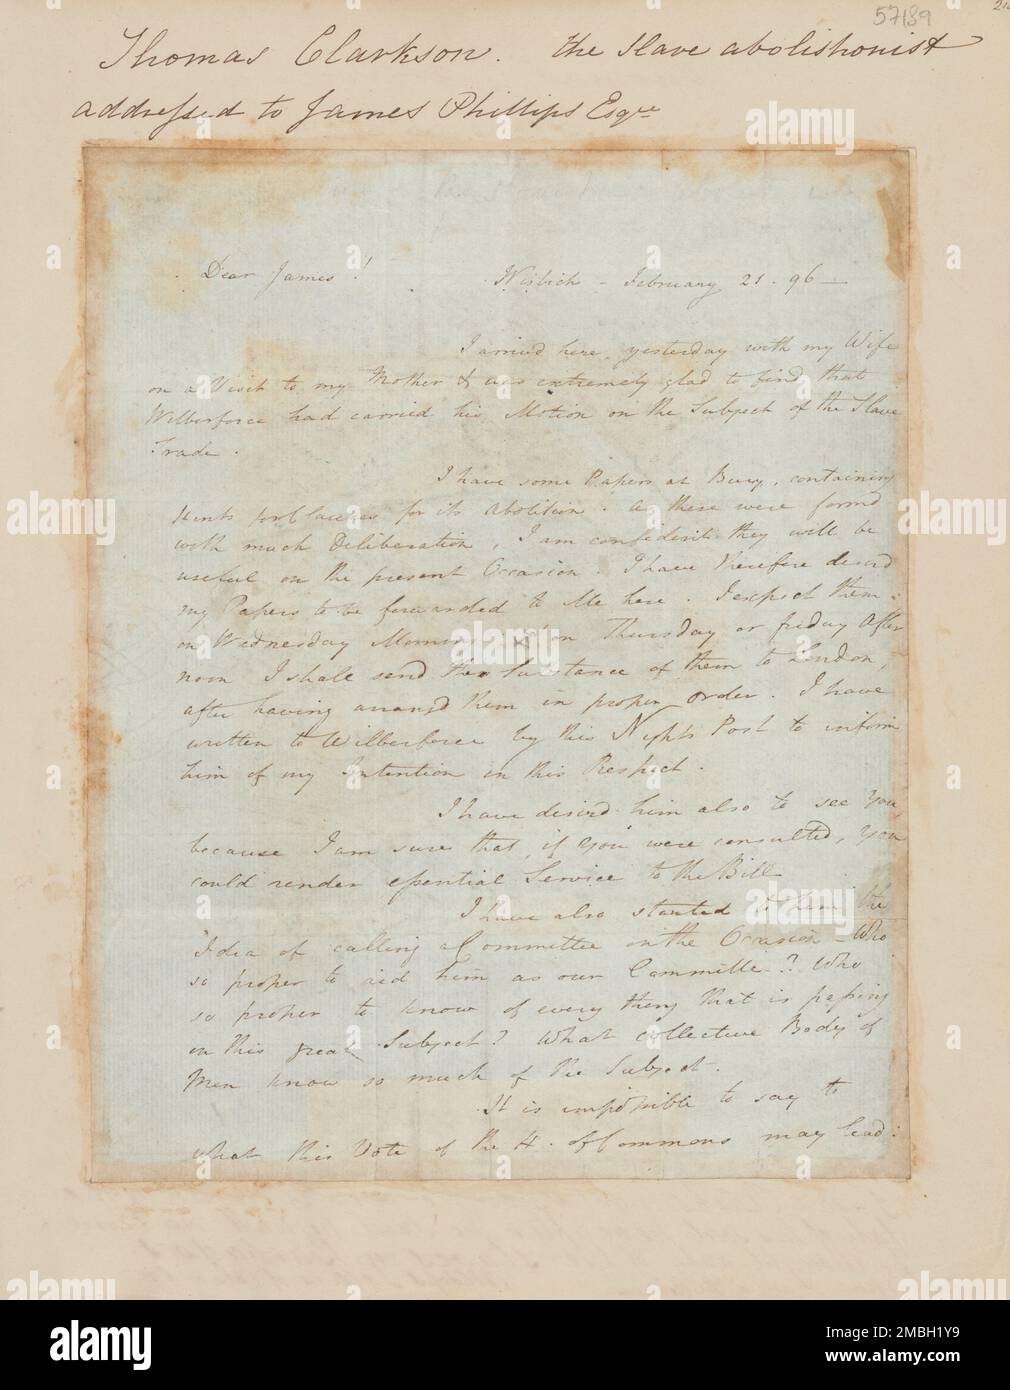 57189
Thomas Clarkson. the slave abolishonist
addressed to James Phillips Esqre
Dear James!
Wisbich - February 21. 96 —
I arrived here, yesterday with my Wife
on a Visit to my Mother & was extremely glad to find that
Wilberforce had carried his Motion on the Subject of the Slave
Trade.
I have some Papers at Bury, containing
Hints for Clauses for its abolition. As these were formd
with much Deliberation, I am confident they will be
useful on the present Occasion. I have therefore desird
my Papers to be forwarded to Me here. I expect them
on Wednesday Morning & on Thursday or friday After
noon I shall send the Substance of them to London,
after having arrangd them in proper order. I have
written to Wilberforce by this Night's Post to inform
him of my Intention in this Respect.
I have desird him also to see You,
because I am sure that, if You were consulted, You
could render essential Service to the Bill
I have also started to him the
Idea of calling a Committee on the Occasion - Who
so proper to aid him as our Committee? Who
so proper to know of every thing that is passing
on this great Subject? What collective Body of
Men know so much of the Subject.
It is impossible to say to
what this Vote of the H. of Commons may lead.
alamy
Image ID: 2MBH1Y9
www.alamy.com